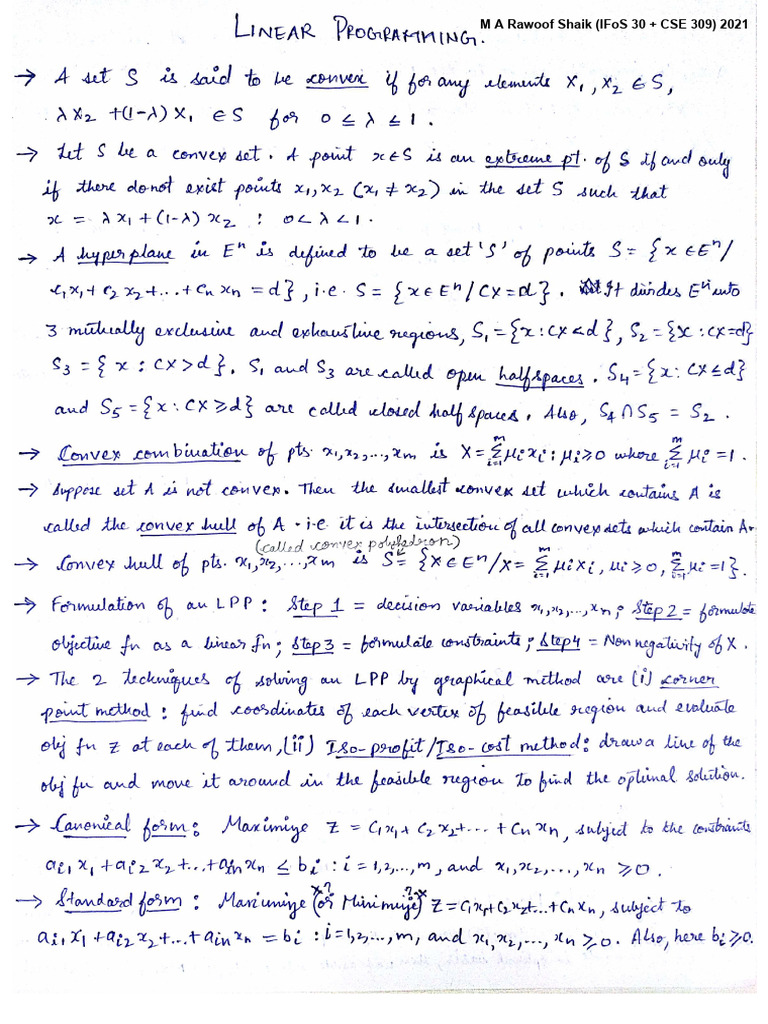 LINEAR PROGRAMMING. M A Rawoof Shaik (IFoS 30 + CSE 309) 2021
→ A set S is said to be convex if for any elements X₁, X₂ ∈ S,
λX₂ + (1-λ) X₁ ∈ S for 0 ≤ λ ≤ 1.
→ Let S be a convex set. A point x∈S is an extreme pt. of S if and only
if there donot exist points x₁, x₂ (x₁ ≠ x₂) in the set S such that
x = λx₁ + (1-λ) x₂ : 0<λ<1.
→ A hyperplane in Eⁿ is defined to be a set 'S' of points S = {x∈Eⁿ/
c₁x₁ + c₂x₂ + ... + cₙxₙ = d}, i.e. S = {x∈Eⁿ/CX=d}. It divides Eⁿ into
3 mutually exclusive and exhaustive regions, S₁ = {x : CX<d}, S₂ = {x : CX=d}
S₃ = {x : CX>d}. S₁ and S₃ are called open halfspaces. S₄ = {x : CX≤d}
and S₅ = {x : CX≥d} are called closed half spaces. Also, S₄ ∩ S₅ = S₂.
→ Convex combination of pts. x₁, x₂, ..., xₘ is X = Σᵢ₌₁ᵐ μᵢxᵢ : μᵢ≥0 where Σᵢ₌₁ᵐ μᵢ = 1.
→ Suppose set A is not convex. Then the smallest convex set which contains A is
called the convex hull of A. i.e. it is the intersection of all convex sets which contain A.
(called convex polyhedron)
→ Convex hull of pts. x₁, x₂, ..., xₘ is S = {X∈Eⁿ/X = Σᵢ₌₁ᵐ μᵢxᵢ, μᵢ≥0, Σᵢ₌₁ᵐ μᵢ=1}.
→ Formulation of an LPP : Step 1 = decision variables x₁, x₂, ..., xₙ; Step 2 = formulate
objective fn as a linear fn; Step 3 = formulate constraints; Step 4 = Non negativity of X.
→ The 2 techniques of solving an LPP by graphical method are (i) corner
point method : find coordinates of each vertex of feasible region and evaluate
obj fn z at each of them, (ii) Iso-profit/Iso-cost method : draw a line of the
obj fn and move it around in the feasible region to find the optimal solution.
→ Canonical form : Maximize Z = c₁x₁ + c₂x₂ + ... + cₙxₙ, subject to the constraints
aᵢ₁x₁ + aᵢ₂x₂ + ... + aᵢₙxₙ ≤ bᵢ : i = 1,2,...,m, and x₁, x₂, ..., xₙ ≥ 0.
→ Standard form : Maximize x?(or Minimize)?x Z = c₁x₁ + c₂x₂ + ... + cₙxₙ, subject to
aᵢ₁x₁ + aᵢ₂x₂ + ... + aᵢₙxₙ = bᵢ : i = 1,2,...,m, and x₁, x₂, ..., xₙ ≥ 0. Also, here bᵢ ≥ 0.